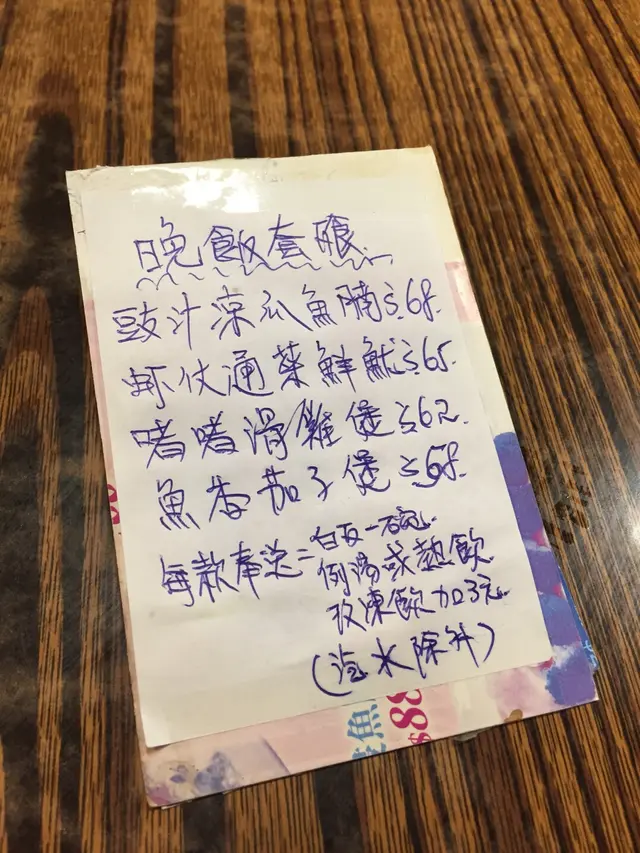 晚飯套餐
豉汁凉瓜魚腩$68.
虾仗通菜鮮魷$65.
啫啫滑雞煲$62.
魚香茄子煲$58.
每款奉送=白反一碗.
例湯或熱飲
改凍飲加3元.
(汽水除外)
魚
$88